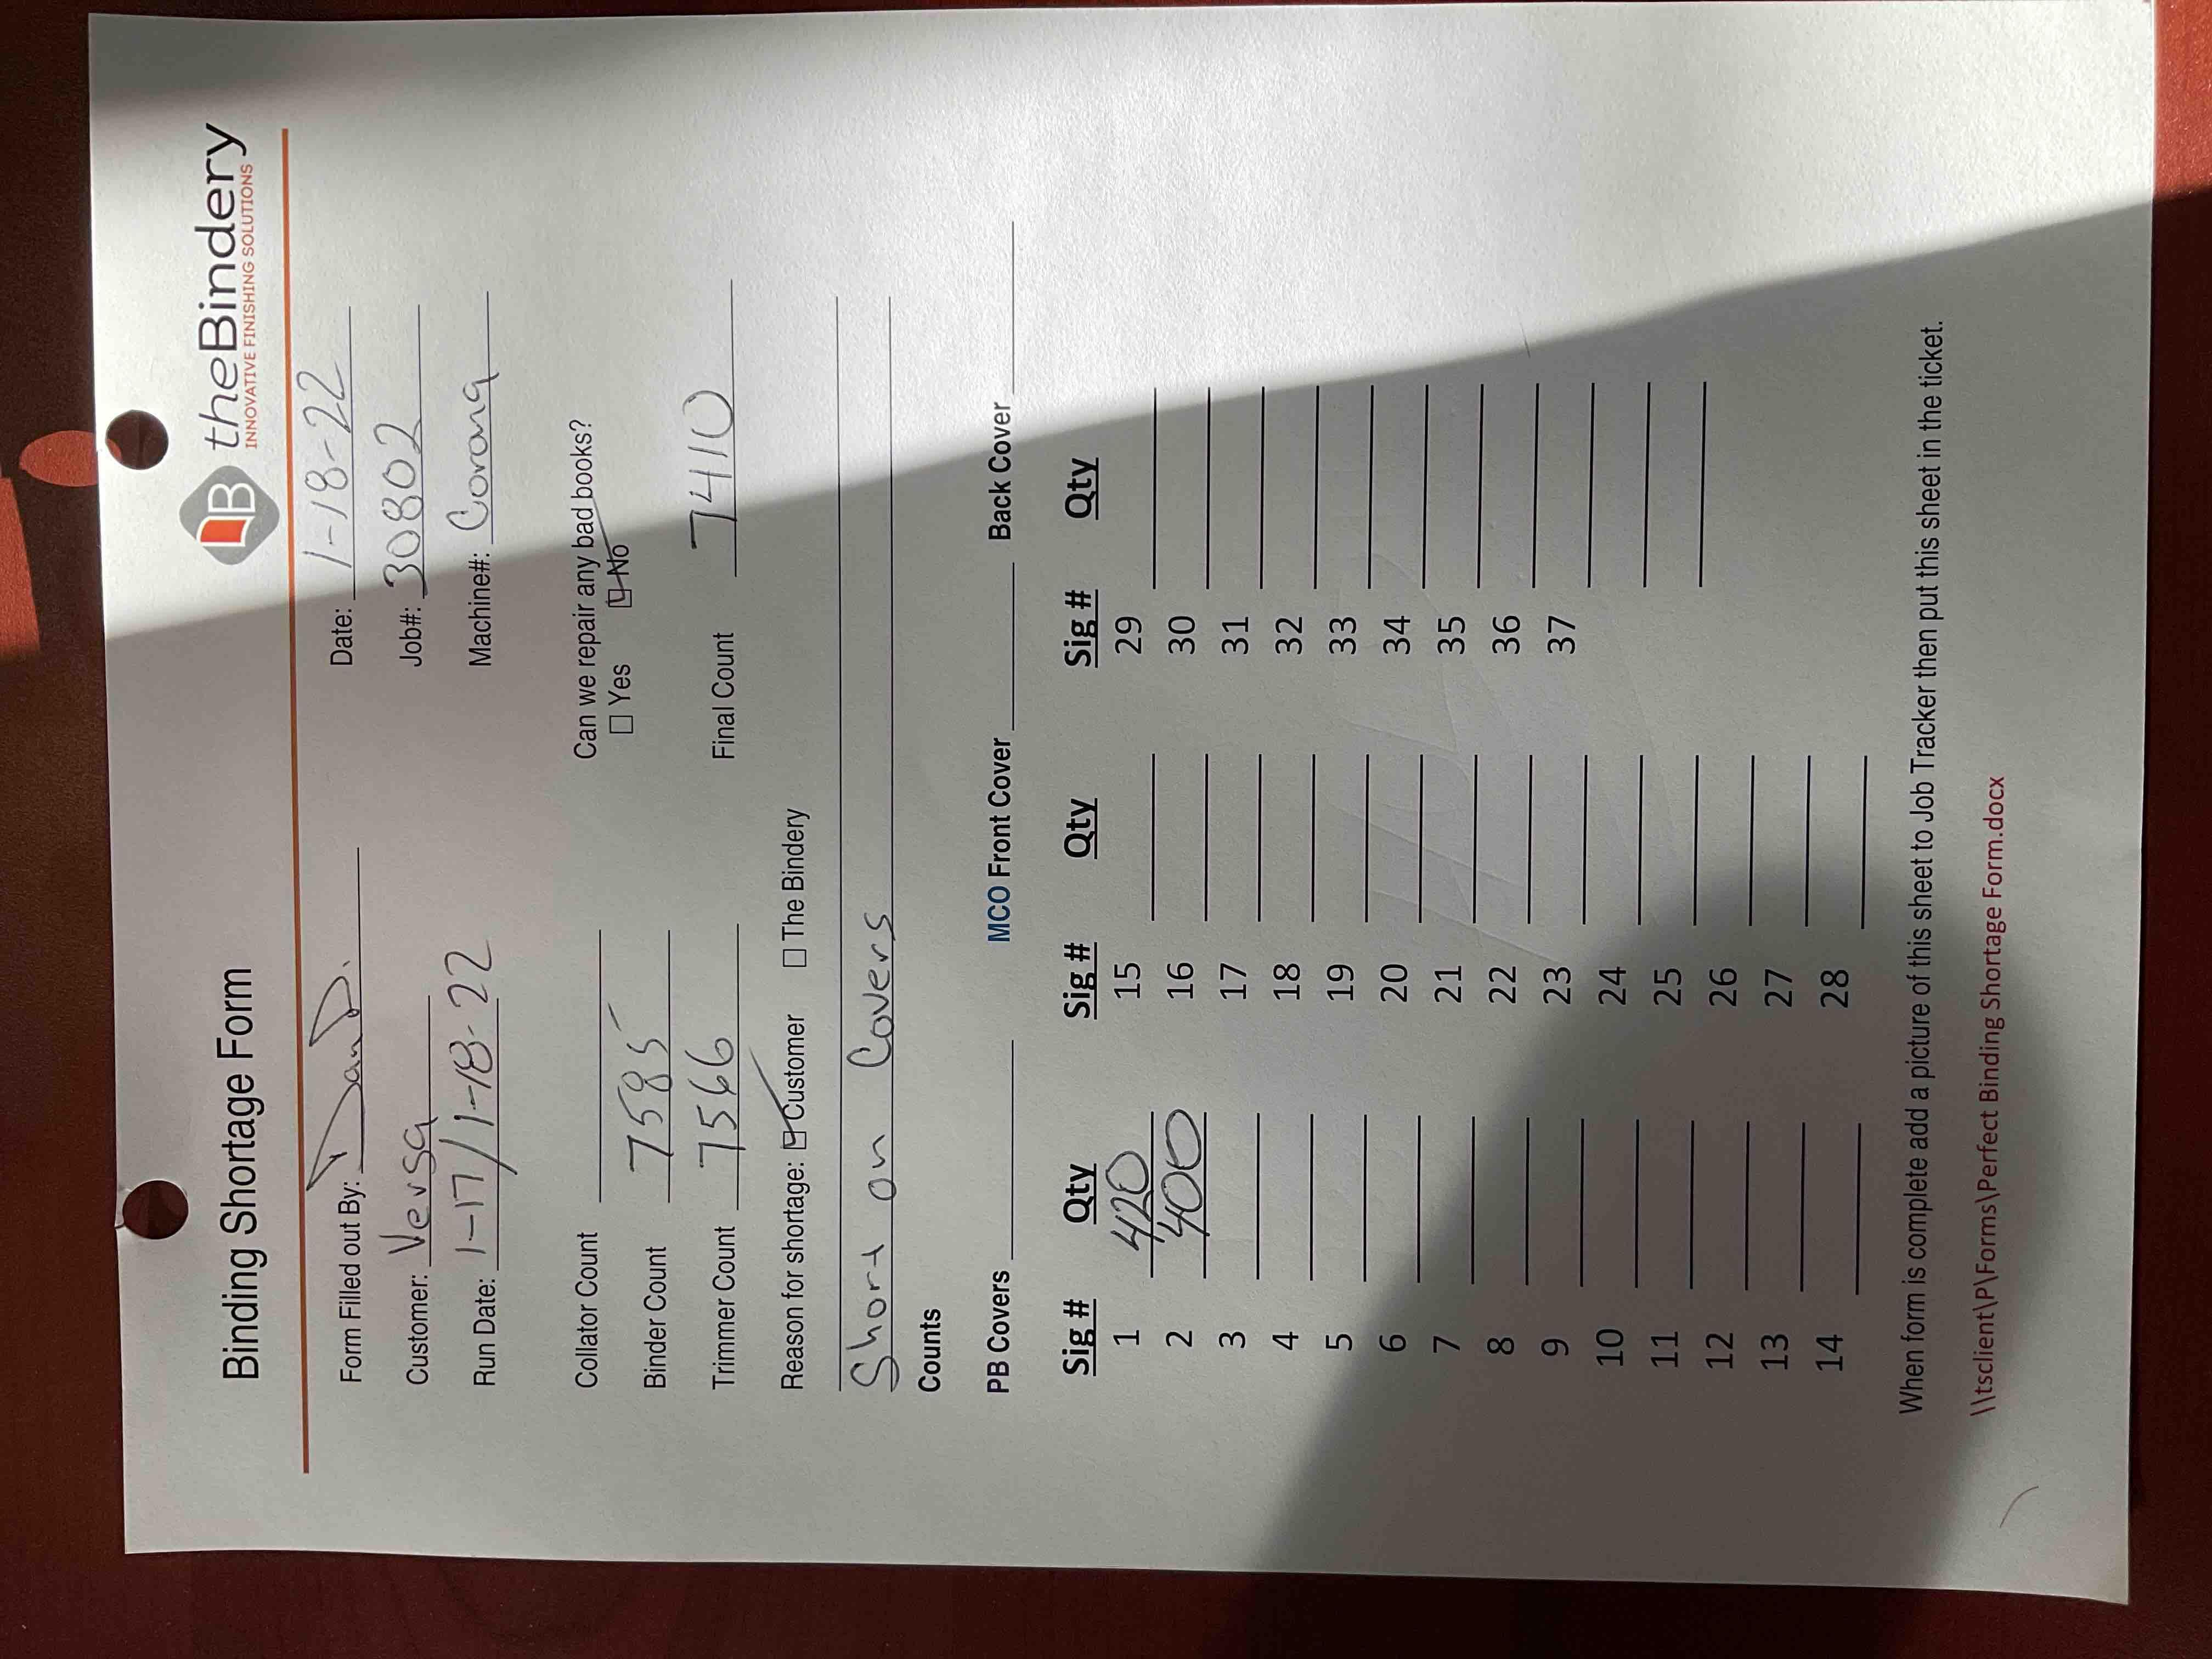 Binding Shortage Form
B theBindery
INNOVATIVE FINISHING SOLUTIONS
Form Filled out By: Dan D. Date: 1-18-22
Customer: Versa Job#: 30802
Run Date: 1-17/1-18-22 Machine#: Corona
Collator Count Can we repair any bad books?
Binder Count 7585 Yes No
Trimmer Count 7566 Final Count 7410
Reason for shortage: Customer The Bindery
Short on Covers
Counts
PB Covers MCO Front Cover Back Cover
Sig # Qty Sig # Qty Sig # Qty
1 420 15 29
2 400 16 30
3 17 31
4 18 32
5 19 33
6 20 34
7 21 35
8 22 36
9 23 37
10 24
11 25
12 26
13 27
14 28
When form is complete add a picture of this sheet to Job Tracker then put this sheet in the ticket.
\\tsclient\P\Forms\Perfect Binding Shortage Form.docx